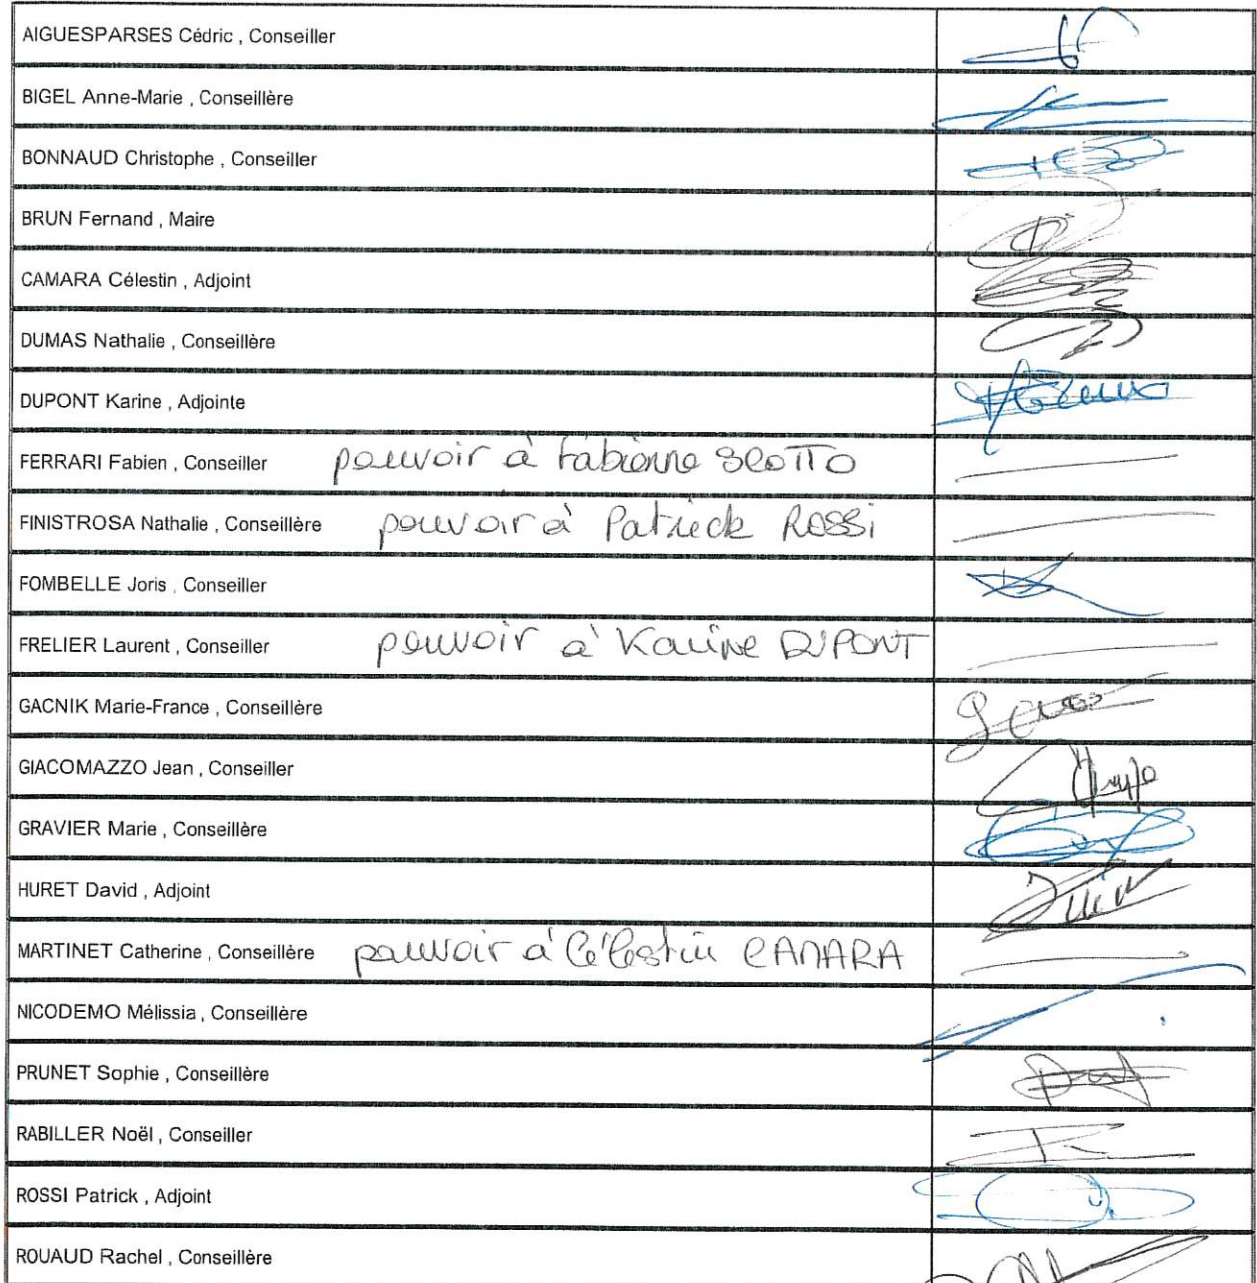 AIGUESPARSES Cédric , Conseiller
BIGEL Anne-Marie , Conseillère
BONNAUD Christophe , Conseiller
BRUN Fernand , Maire
CAMARA Célestin , Adjoint
DUMAS Nathalie , Conseillère
DUPONT Karine , Adjointe
FERRARI Fabien , Conseiller pouvoir à Fabienne SCOTTO
FINISTROSA Nathalie , Conseillère pouvoir à Patrick ROSSi
FOMBELLE Joris , Conseiller
FRELIER Laurent , Conseiller pouvoir à Karine DUPONT
GACNIK Marie-France , Conseillère
GIACOMAZZO Jean , Conseiller
GRAVIER Marie , Conseillère
HURET David , Adjoint
MARTINET Catherine , Conseillère pouvoir à Célestin CAMARA
NICODEMO Mélissia , Conseillère
PRUNET Sophie , Conseillère
RABILLER Noël , Conseiller
ROSSI Patrick , Adjoint
ROUAUD Rachel , Conseillère